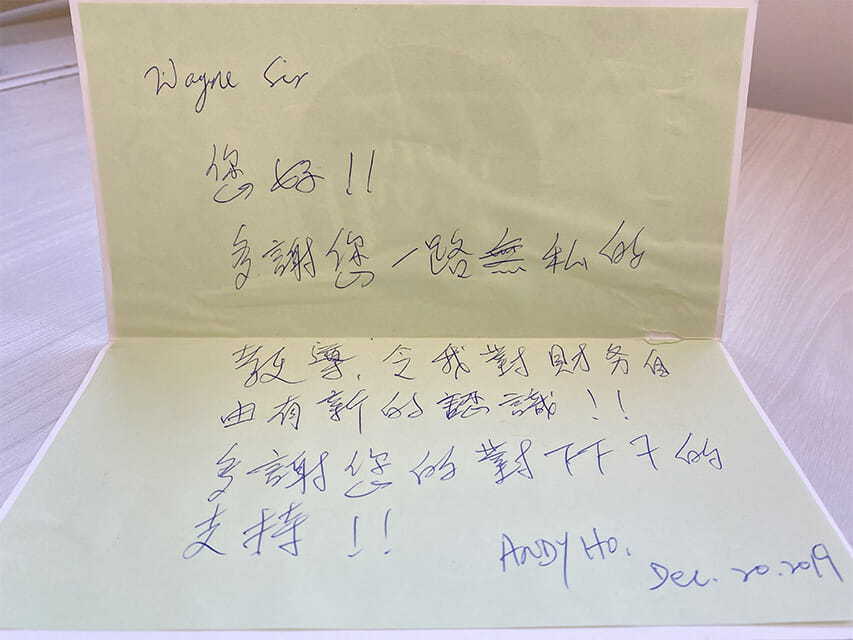 Wayne Sir
您好!!
多謝您一路無私的
教導,令我對財务自
由有新的認識!!
多謝您的對下下7的
支持!!
ANDY HO.
Dec. 20. 2019